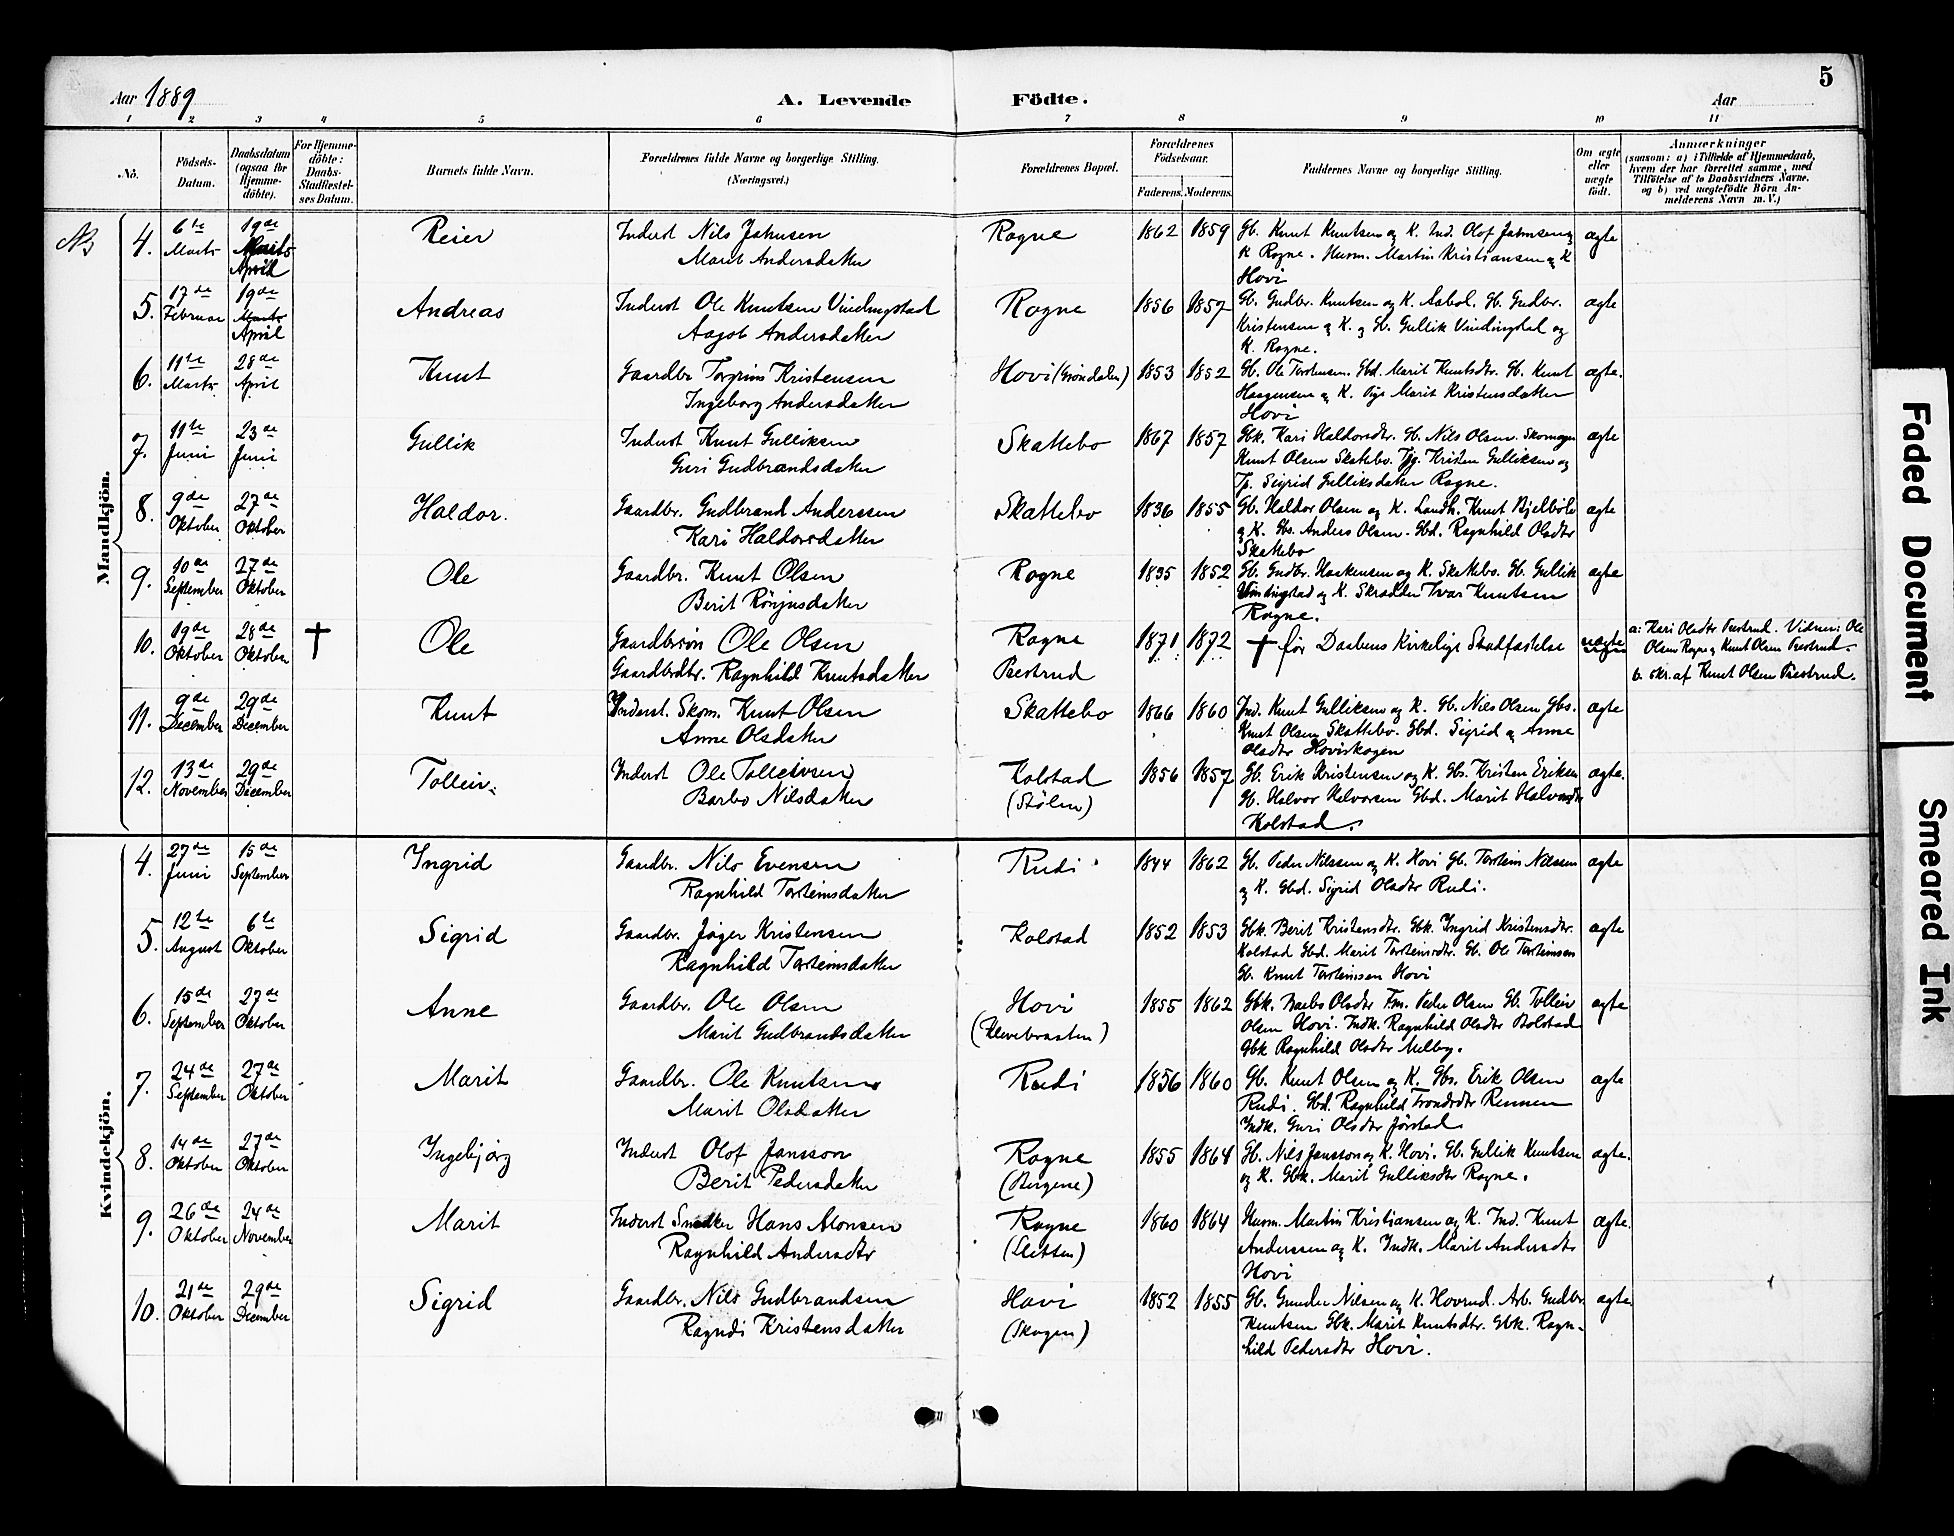 5
Aar 1889
A. Levende Födte.
Aar
1 2 3 4 5 6 7 8 9 10 11
No.
Födsels-Datum.
Daabsdatum (ogsaa for Hjemme-döbte).
For Hjemme-döbte: Daabs-Stadfæstel-ses Datum.
Barnets fulde Navn.
Forældrenes fulde Navne og borgerlige Stilling. (Næringsvei.)
Forældrenes Bopæl.
Forældrenes Födselsaar.
Faderens. Moderens.
Faddernes Navne og borgerlige Stilling.
Om ægte eller uægte födt.
Anmærkninger (saasom: a) i Tilfælde af Hjemmedaab, hvem der har forrettet samme, med Tilföielse af to Daabsvidners Navne, og b) ved uægtefödte Börn An-melderens Navn m. V.)
Mandkjön.
4. 6te Marts 19de Marts April Reier Inderst Nils Jahnsen Rogne 1862 1859 Gb. Knut Knutsen og K. Ind. Olof Jahnsen og ægte
Marit Andersdatter K Rogne. Husm. Martin Kristiansen og K
Hovi
5. 17de Februar 19de Marts April Andreas Inderst Ole Knutsen Vindingstad Rogne 1856 1857 Gb. Gudbr. Knutsen og K. Gb. Gudbr. ægte
Aagot Andersdatter Kristensen og K. og Gb. Gullik og
K. Rogne.
6. 11te Marts 28de April Knut Gaardbr Torgrim Kristensen Hovi (Gröndalen) 1853 1852 Gb. Ole Torstensen. Gbd. Marit Knutsdtr. Gb. Knut ægte.
Ingeborg Andersdatter Haagensen og K. Pige Marit Kristensdatter
Hovi
7. 11te Juni 23de Juni Gullik Inderst Knut Gulliksen Skattebo 1867 1857 Gbk. Kari Haldorsdtr. Gb. Nils Olsen. Skomager ægte
Guri Gudbrandsdatter Knut Olsen Skattebo. Tjg. Kristen Gulliksen og
Tp. Sigrid Gulliksdatter Rogne.
8. 9de Oktober 27de Oktober Haldor. Gaardbr. Gudbrand Anderssen Skattebo 1836 1855 Gb. Haldor Olsen og K. Landh. Knut Bjelböle ægte
Kari Haldorsdatter og K. Gbs. Anders Olsen. Gbd. Ragnhild Olsdtr
Skattebo
9. 10de September 27de Oktober Ole Gaardbr. Knut Olsen Rogne 1835 1852 Gb. Gudbr. Haakensen og K. Skattebo. Gb. Gullik ægte
Berit Rönjusdatter Vindingstad og K. Skrædder Ivar Knutsen
Rogne.
10. 19de Oktober 28de Oktober † Ole Gaardbrsön Ole Olsen Rogne 1871 1872 † för Daabens Kirkelige Stadfæstelse uægte a: Kari Olsdtr Præstrud. Vidner: Ole
Gaardbrdtr. Ragnhild Knutsdatter Præstrud Olsen Rogne og Knut Olsen Præstrud.
b. skr. af Knut Olsen Præstrud.
11. 9de December 29de December Knut Inderst. Skom. Knut Olsen Skattebo 1866 1860 Ind. Knut Gulliksen og K. Gb. Nils Olsen Gbs. ægte
Anne Olsdatter Knut Olsen Skattebo. Gbd. Sigrid og Anne
Olsdtr Hoviskogen
12. 13de November 29de December Tolleiv. Inderst Ole Tolleivsen Kolstad 1856 1857 Gb. Erik Kristensen og K. Gbs. Kristen Eriksen ægte.
Barbo Nilsdatter (Stölen) Gb. Halvor Halvorsen Gbd. Marit Halvorsdtr
Kolstad.
Kvindekjön.
4. 27de Juni 15de September Ingrid Gaardbr. Nils Evensen Rudi 1844 1862 Gb. Peder Nilssen og K. Hovi Gb. Torstein Nilssen ægte
Ragnhild Torsteinsdatter og K. Gbd. Sigrid Olsdtr Rudi.
5. 12te August 6te Oktober Sigrid Gaardbr. Jöger Kristensen Kolstad 1852 1853 Gbk. Berit Kristensdtr. Gbk. Ingrid Kristensdtr. ægte
Ragnhild Torsteinsdatter Kolstad Gbd. Marit Torsteinsdtr. Gb. Ole Torsteinsen
Gb. Knut Torsteinsen Hovi
6. 15de September 27de Oktober Anne Gaardbr. Ole Olsen Hovi 1855 1862 Gbk. Barbo Olsdtr Fm. Peder Olsen Gb. Tolleiv ægte
Marit Gudbrandsdatter (Klevebraaten) Olsen Hovi. Indk. Ragnhild Olsdtr Bolstad
Gbk Ragnhild Olsdtr Melby.
7. 24de September 27de Oktober Marit Gaardbr. Ole Knutsen Rudi 1856 1860 Gb. Knut Olsen og K. Gbs. Erik Olsen ægte
Marit Olsdatter Rudi. Gbd. Ragnhild Trondsdtr Rennen
Indk. Guri Olsdtr Jörstad.
8. 14de Oktober 27de Oktober Ingebjörg Inderst Olof Jansson Rogne 1855 1864 Gb. Nils Jansson og K. Hovi. Gb. Gullik Knutsen ægte.
Berit Pedersdatter (Bergene) og K. Gbk. Marit Gulliksdtr Rogne.
9. 26de Oktober 24de November Marit Inderst Snedker Hans Monsen Rogne 1860 1864 Husm. Martin Kristiansen og K. Ind. Knut ægte.
Ragnhild Andersdtr (Sletten) Anderssen og K. Indk. Marit Andersdtr
Hovi
10. 21de Oktober 29de December Sigrid Gaardbr. Nils Gudbrandsen Hovi 1852 1855 Gb. Gunder Nilsen og K. Hovrud. Arb. Gudbr. ægte.
Ragndi Kristensdatter (Skogen) Knutsen Gbk. Marit Knutsdtr. Gbk. Ragn-
hild Pedersdtr Hovi.
Faded Document
Smeared Ink